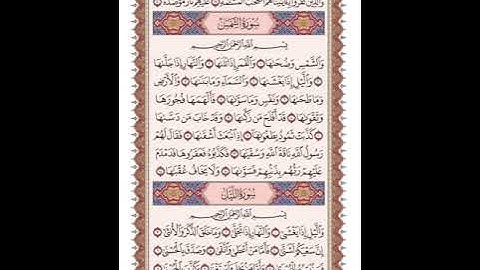 وَالَّذِينَ كَفَرُوا بِآيَاتِنَا هُمْ أَصْحَابُ الْمَشْأَمَةِ ۝ عَلَيْهِمْ نَارٌ مُؤْصَدَةٌ ۝
سُورَةُ الشَّمْسِ
بِسْمِ اللَّهِ الرَّحْمَٰنِ الرَّحِيمِ
وَالشَّمْسِ وَضُحَاهَا ۝ وَالْقَمَرِ إِذَا تَلَاهَا ۝ وَالنَّهَارِ إِذَا جَلَّاهَا
۝ وَاللَّيْلِ إِذَا يَغْشَاهَا ۝ وَالسَّمَاءِ وَمَا بَنَاهَا ۝ وَالْأَرْضِ
وَمَا طَحَاهَا ۝ وَنَفْسٍ وَمَا سَوَّاهَا ۝ فَأَلْهَمَهَا فُجُورَهَا
وَتَقْوَاهَا ۝ قَدْ أَفْلَحَ مَنْ زَكَّاهَا ۝ وَقَدْ خَابَ مَنْ دَسَّاهَا
۝ كَذَّبَتْ ثَمُودُ بِطَغْوَاهَا ۝ إِذِ انْبَعَثَ أَشْقَاهَا ۝ فَقَالَ لَهُمْ
رَسُولُ اللَّهِ نَاقَةَ اللَّهِ وَسُقْيَاهَا ۝ فَكَذَّبُوهُ فَعَقَرُوهَا فَدَمْدَمَ
عَلَيْهِمْ رَبُّهُمْ بِذَنْبِهِمْ فَسَوَّاهَا ۝ وَلَا يَخَافُ عُقْبَاهَا ۝
سُورَةُ اللَّيْلِ
بِسْمِ اللَّهِ الرَّحْمَٰنِ الرَّحِيمِ
وَاللَّيْلِ إِذَا يَغْشَىٰ ۝ وَالنَّهَارِ إِذَا تَجَلَّىٰ ۝ وَمَا خَلَقَ الذَّكَرَ وَالْأُنْثَىٰ ۝
إِنَّ سَعْيَكُمْ لَشَتَّىٰ ۝ فَأَمَّا مَنْ أَعْطَىٰ وَاتَّقَىٰ ۝ وَصَدَّقَ بِالْحُسْنَىٰ ۝